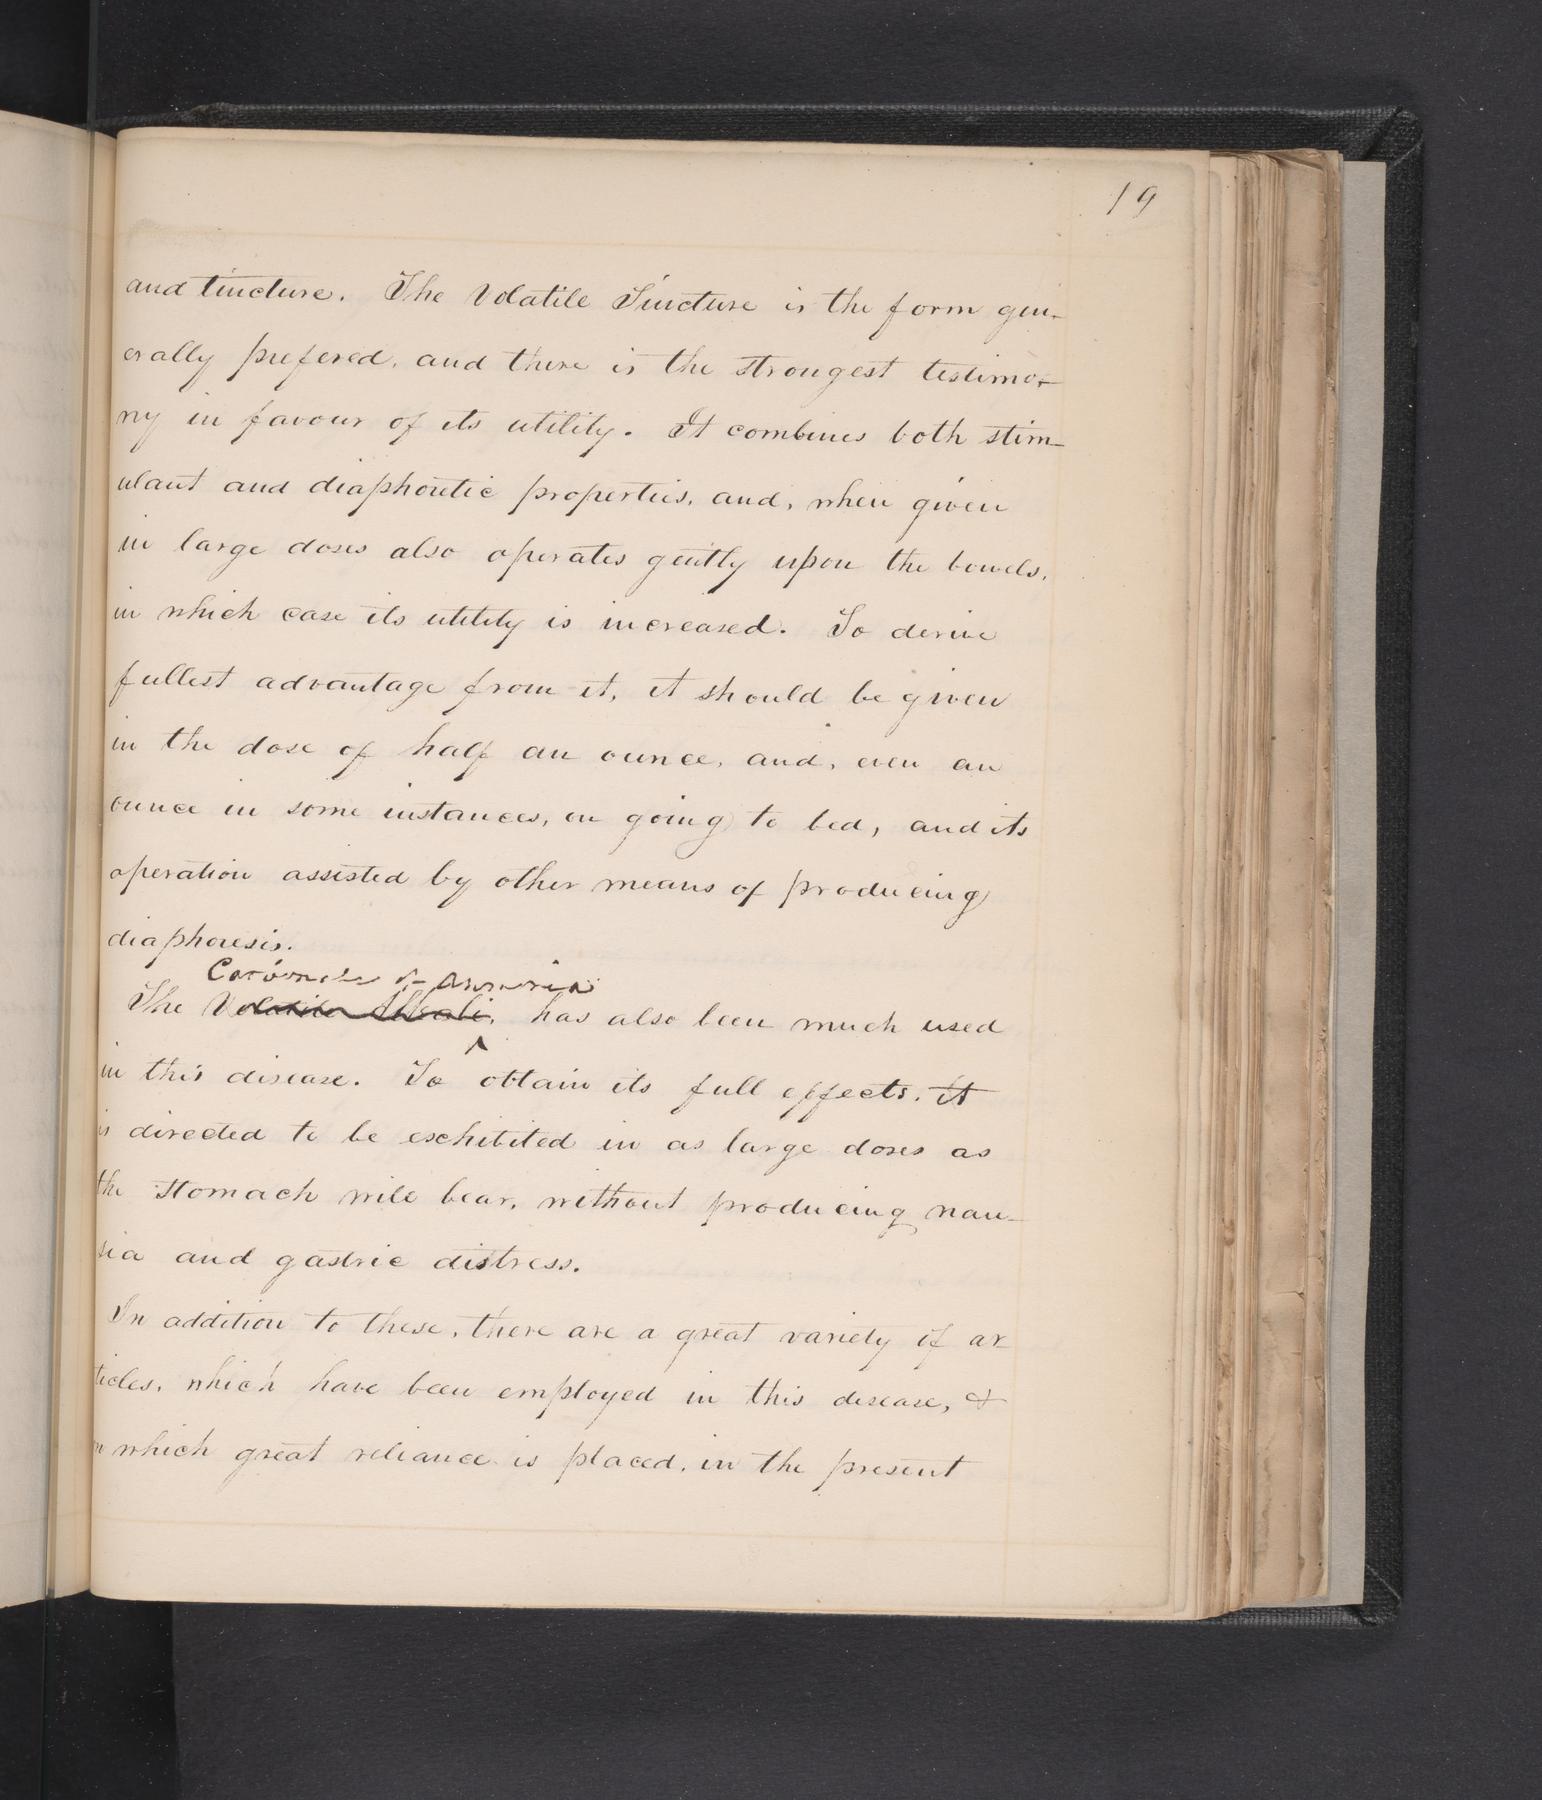 19
and tincture. The Volatile Tincture is the form gen-
erally prefered, and there is the strongest testimo-
ny in favour of its utility. It combines both stim-
ulant and diaphoretic properties, and, when given
in large doses also operates gently upon the bowels,
in which case its utility is increased. To derive
fullest advantage from it, it should be given
in the dose of half an ounce, and, even an
ounce in some instances, on going to bed, and its
operation assisted by other means of producing
diaphoresis.
Carbonate of Ammonia
The Volatile Alkali, has also been much used
in this disease. To obtain its full effects, it
is directed to be exhibited in as large doses as
the stomach will bear, without producing nau-
sia and gastric distress.
In addition to these, there are a great variety of ar-
ticles, which have been employed in this disease, &
on which great reliance is placed, in the present